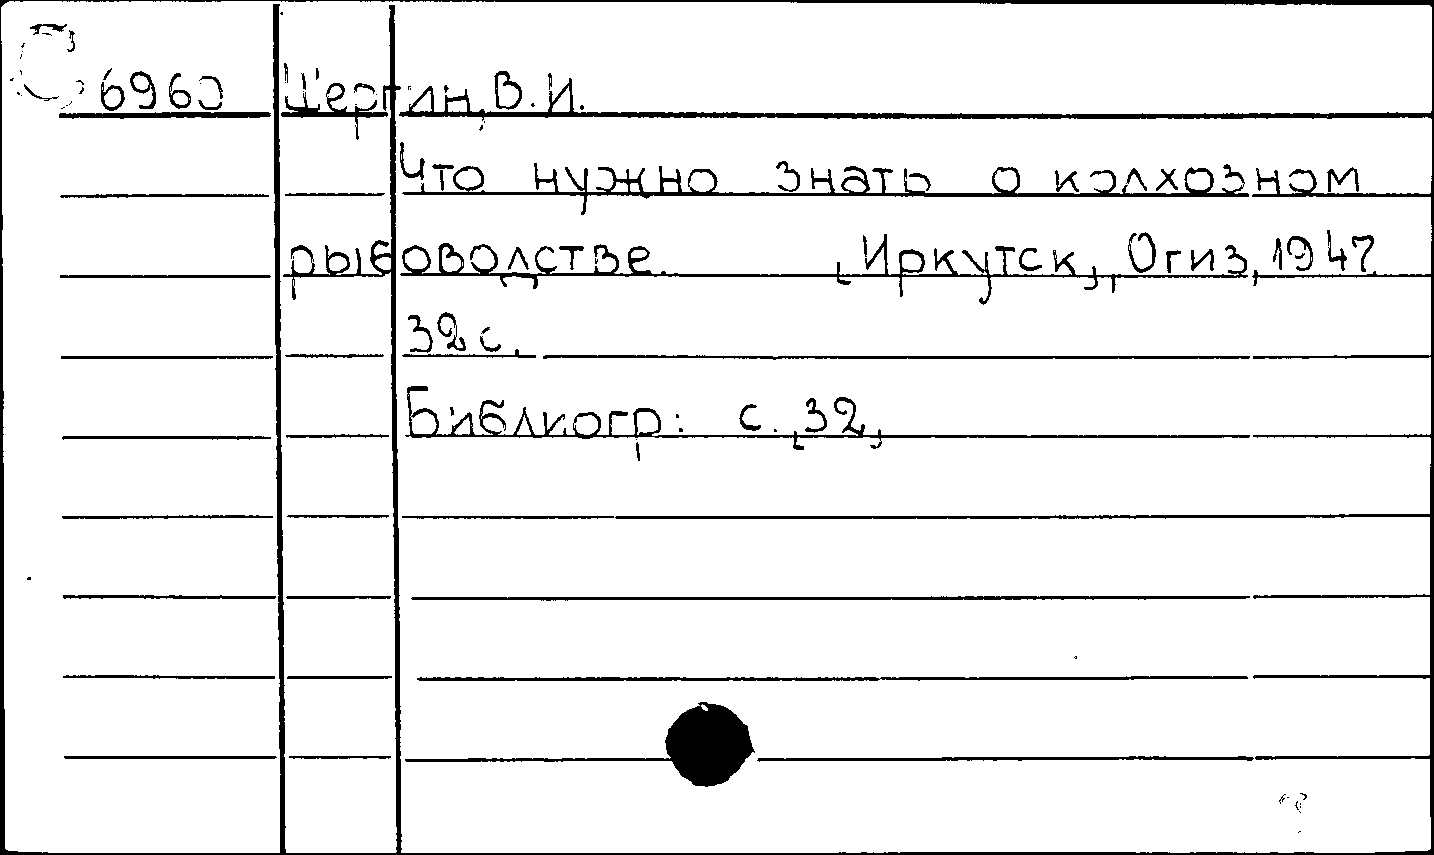 6960 Шергин, В. И.
Что нужно знать о колхозном
рыбоводстве. [Иркутск], Огиз, 1947.
32 с.
Библиогр: с. [32]